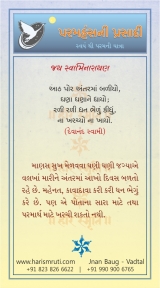 પરબ્રહ્મની પ્રસાદી
જય સ્વામિનારાયણ
આઠ પોર અંતરમાં બળીયો,
ઘણા ઘણાને છળીયો;
રળી રળી ધન ભેળું કીધું,
ના ખરચ્યો ના ખાધો.
(દેવાનંદ સ્વામી)
માણસ સુખ મેળવવા ઘણી ઘણી જગ્યાએ
વલખાં મારીને અંતરમાં આખો દિવસ બળતો
રહે છે. મહેનત, કાવાદાવા કરી કરી ધન ભેગું
કરે છે. પણ એ પોતાના સારા માટે તથા
પરમાર્થ માટે ખરચી શકતો નથી.
www.harismruti.com
Jnan Baug - Vadtal
+91 823 826 6622
+91 990 900 6765